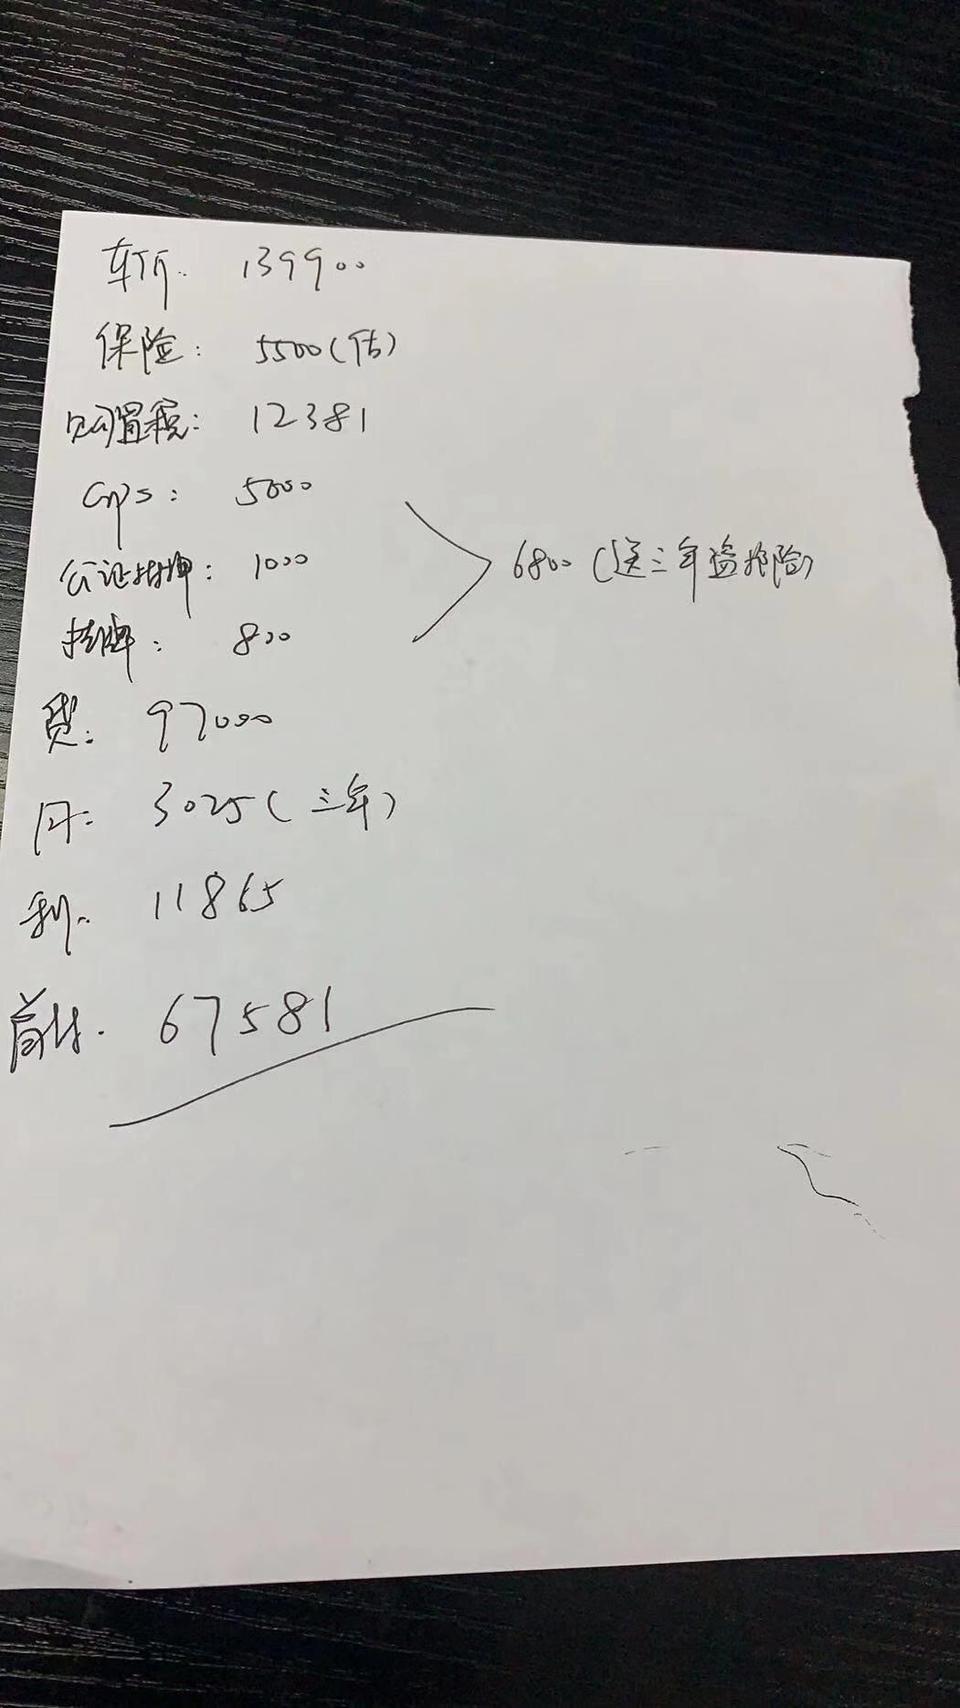 车价: 139900
保险: 5500(估)
购置税: 12381
GPS: 5000
公证抵押: 1000
挂牌: 800
6800 (送三年盗抢险)
贷: 97000
月: 3025(三年)
利: 11865
首付: 67581